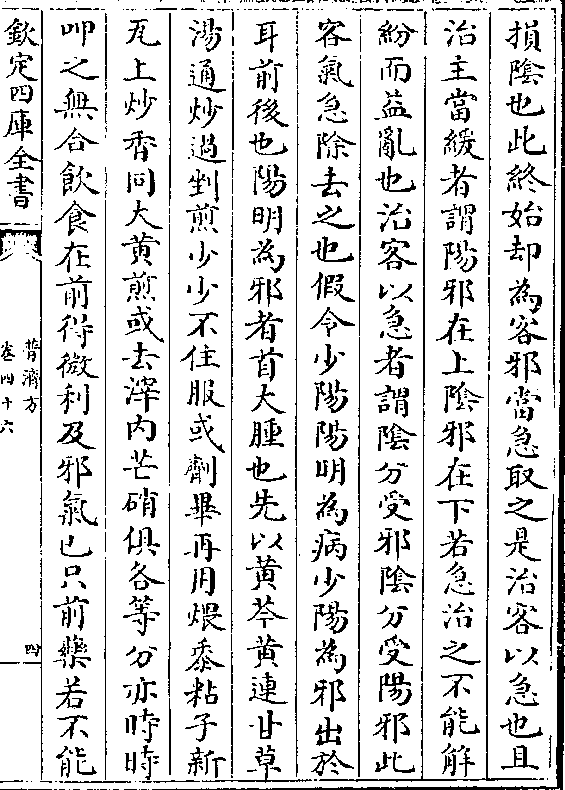 損陰也此終始却為客邪當急取之是治客以急也且
治主當緩者謂陽邪在上陰邪在下若急治之不能解
紛而益亂也治客以急者謂陰分受邪陰分受陽邪此
客氣急除去之也假令少陽陽明為病少陽為邪出於
耳前後也陽明為邪者首大腫也先以黄芩黄連甘草
湯通炒過剉煎少少不住服或劑畢再用煨黍粘子新
瓦上炒香同大黄煎或去滓内芒硝俱各等分亦時時
呷之無令飲食在前得微利及邪氣已只前藥若不能
欽定四庫全書
普濟方
卷四十六
四